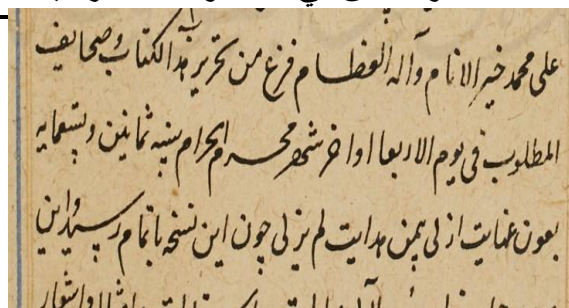 على محمد خير الانام وآله العظام فرغ من تحرير هذا الكتاب وصحايف
المطلوب فى يوم الاربعا اواخر شهر محرم الحرام سنه ثمانين وتسعمايه
بعون عنايت ازلى بيمن هدايت لم يزلى چون اين نسخه باتمام رسيد واين